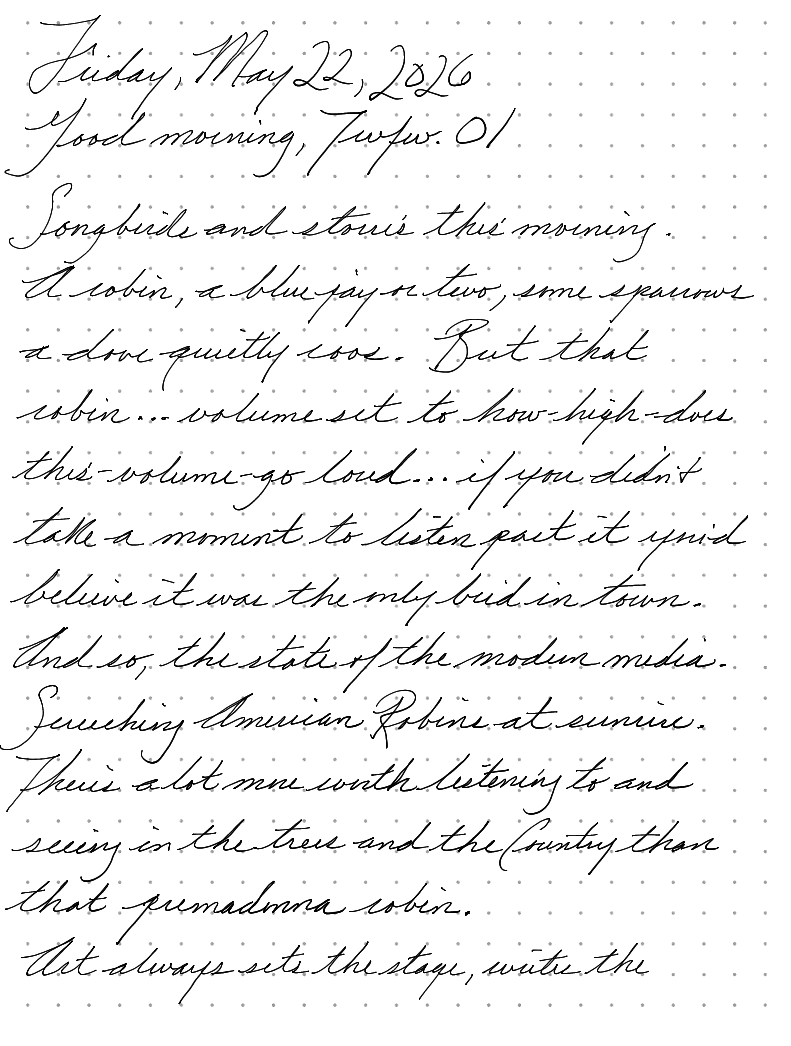 Friday, May 22, 2026
Good morning, Twfw. 01
Songbirds and stories this morning.
A robin, a blue jay or two, some sparrows
a dove quietly coos. But that
robin... volume set to how-high-does
this-volume-go loud... if you didn't
take a moment to listen past it you'd
believe it was the only bird in town.
And so, the state of the modern media.
Screeching American Robins at sunrise.
There's a lot more worth listening to and
seeing in the trees and the Country than
that premadonna robin.
Art always sets the stage, writes the